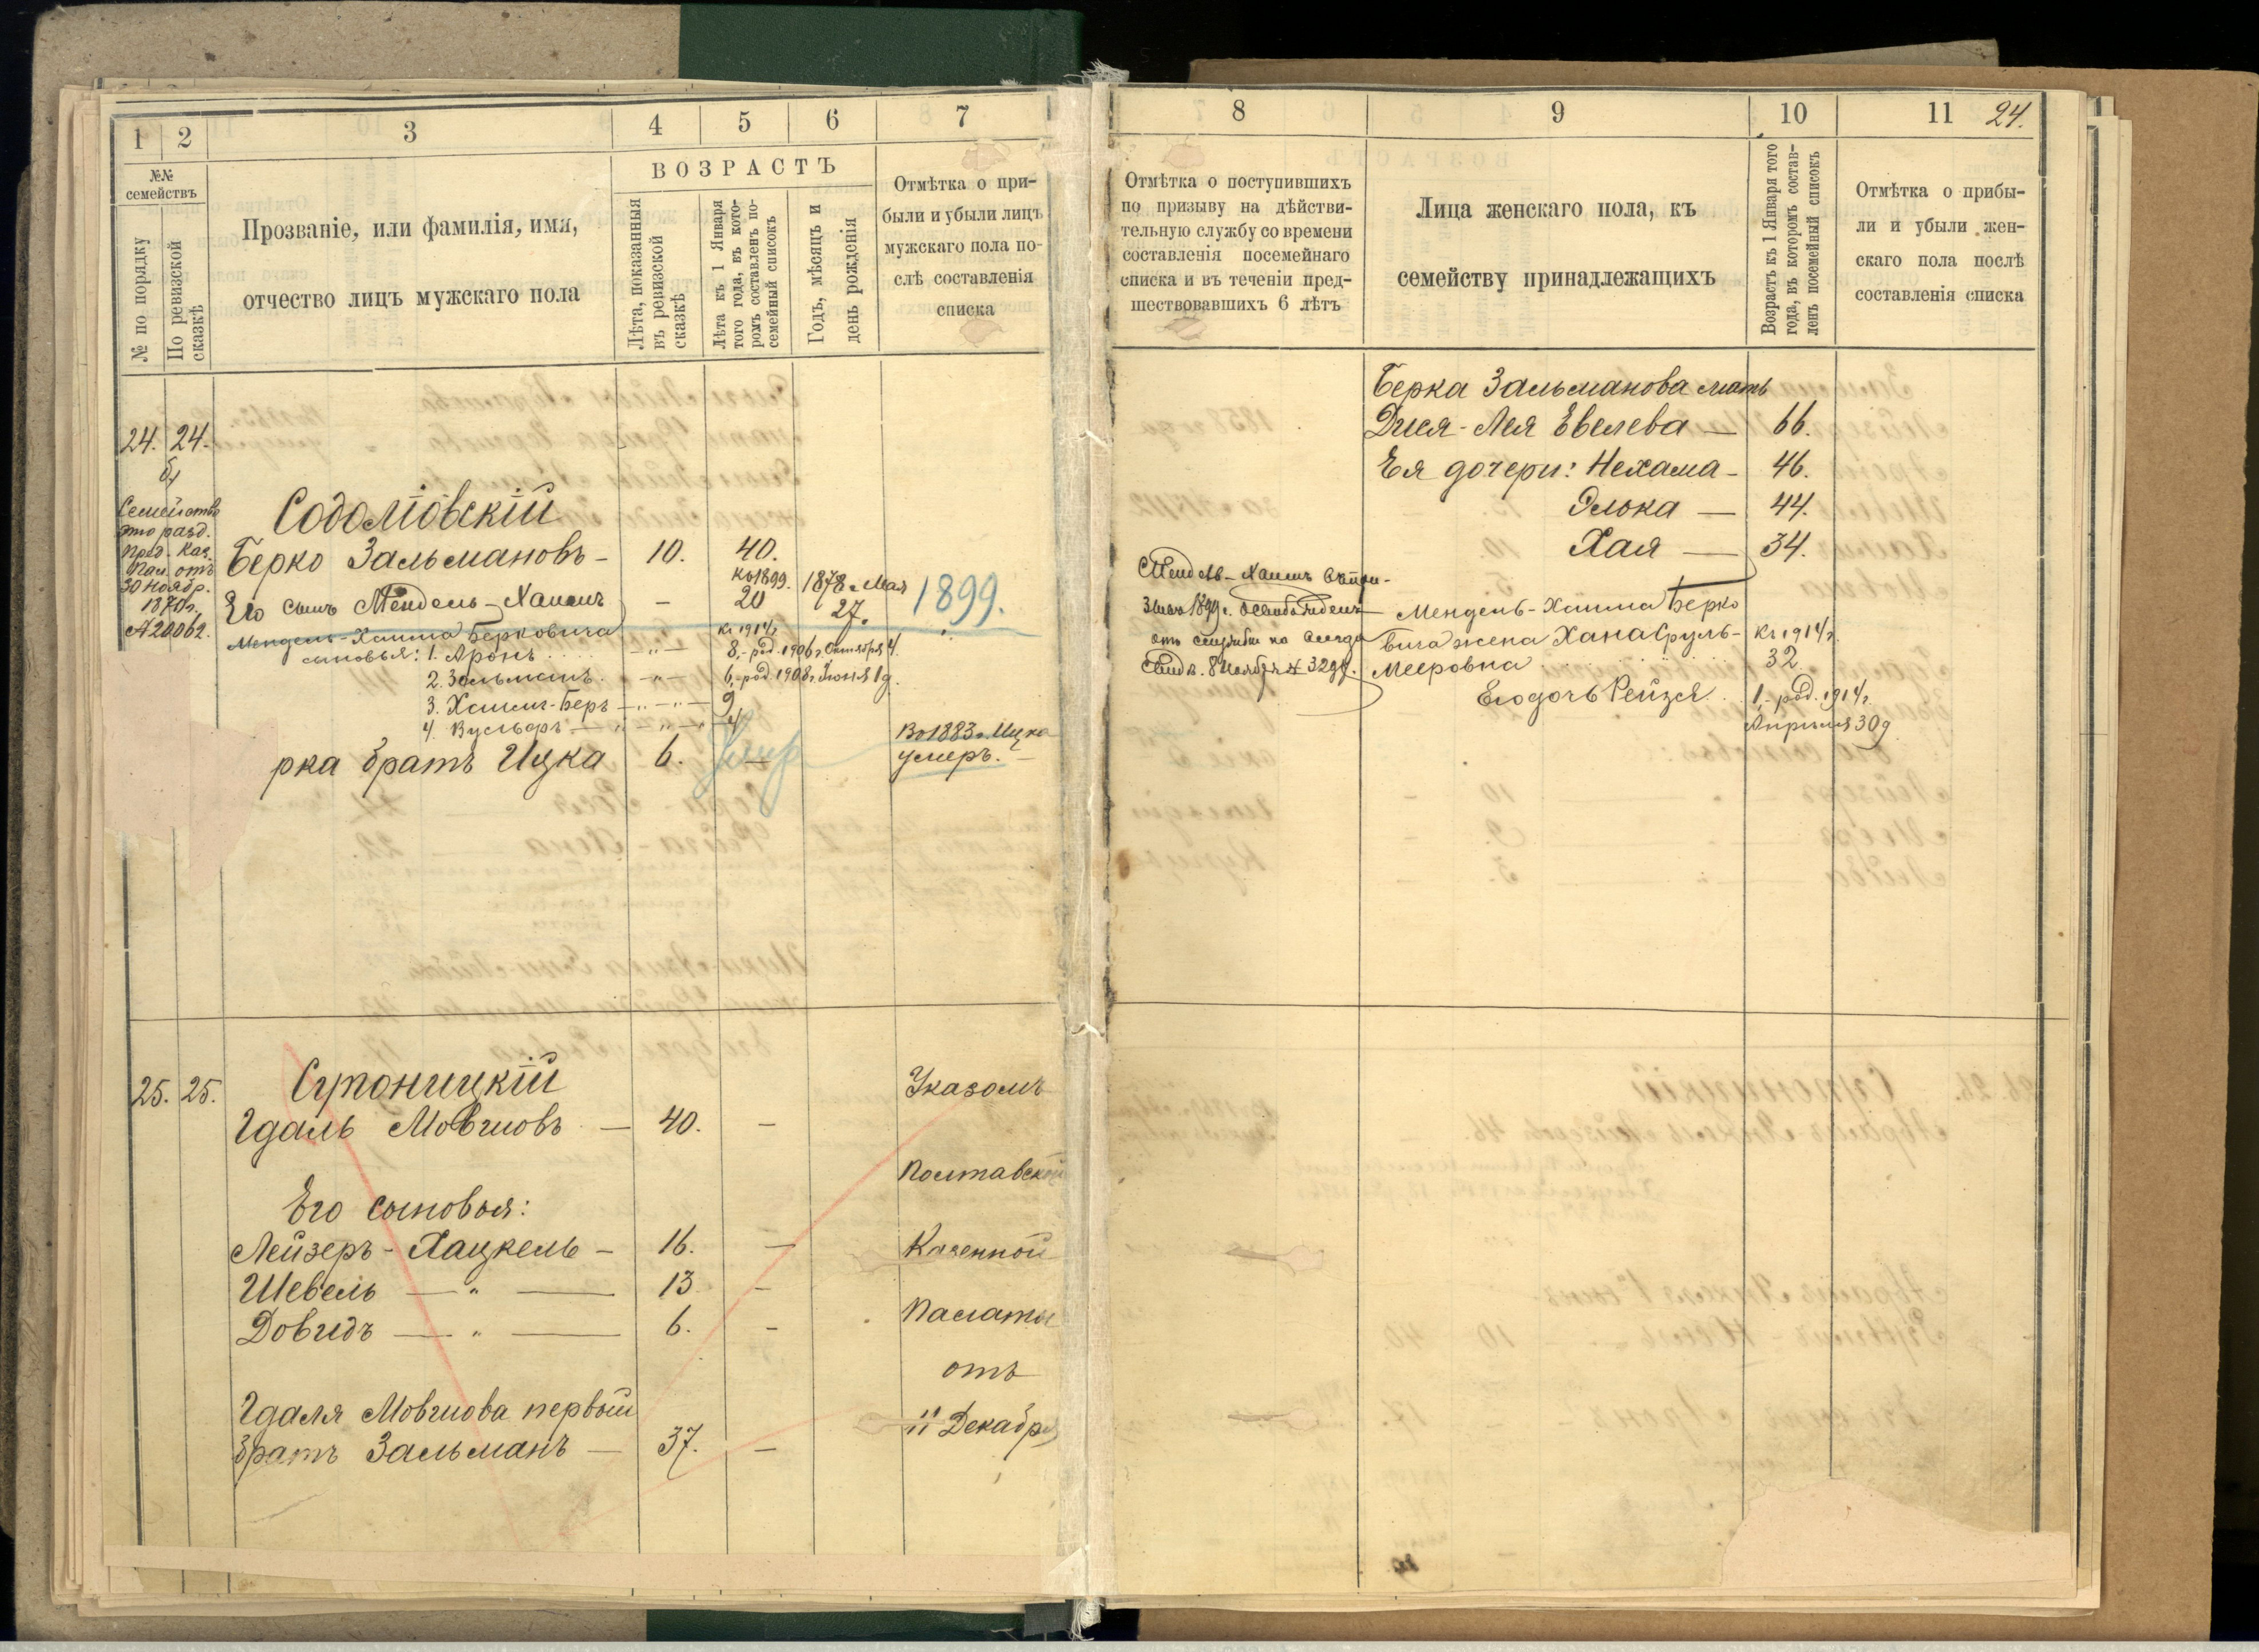 1 2 3 4 5 6 7
№№ семействъ
№ по порядку
По ревизской сказкѣ
Прозваніе, или фамилія, имя,
отчество лицъ мужскаго пола
ВОЗРАСТЪ
Лѣта, показанныя
въ ревизской
сказкѣ
Лѣта къ 1 Января
того года, въ кото-
ромъ составленъ по-
семейный списокъ
Годъ, мѣсяцъ и
день рожденія
Отмѣтка о при-
были и убыли лицъ
мужскаго пола по-
слѣ составленія
списка
24. 24.
Семейство
это разд.
пред. Каз.
Пал. отъ
30 Ноябр.
1870 г.
№ 20062.
Берко Зальмановъ — 10. 40.
Его сынъ Мендель-Хаимъ — къ 1899. 20 1878 г. Мая 27. 1899.
Мендель-Хаима Берковича
сыновья: 1. Аронъ — „ — къ 1914 г. 8,- род. 1906 г. Октября 4.
2. Зальманъ. — „ — 6,- род. 1908 г. Іюня 1 д.
3. Хаимъ-Беръ — „ — „ —
4. Вульфъ — „ — „ — 4
рка братъ Ицка 6. — умер
Въ 1883 г. Ицка
умеръ. —
25. 25.
Супоницкій
Гдаль Мовшовъ — 40. —
Его сыновья:
Лейзеръ - Хацкель — 16. —
Шевель — „ — 13 —
Довидъ — „ — 6. —
Гдаля Мовшова первый
братъ Зальманъ — 37. —
Указомъ
Полтавской
Казенной
Палаты
отъ
11 Декабря
8 9 10 11 24.
Отмѣтка о поступившихъ
по призыву на дѣйстви-
тельную службу со времени
составленія посемейнаго
списка и въ теченіи пред-
шествовавшихъ 6 лѣтъ
Лица женскаго пола, къ
семейству принадлежащихъ
Возрастъ къ 1 Января того
года, въ которомъ состав-
ленъ посемейный списокъ
Отмѣтка о прибы-
ли и убыли жен-
скаго пола послѣ
составленія списка
Берка Зальманова мать
Лея Евелева — 66.
Ея дочери: Нехама — 46.
Элька — 44.
Хая — 34.
Мендель-Хаимъ въ при-
зывъ 1899 г. освобожденъ
отъ службы на всегда
Свид. 8 Ноября № 329
Мендель-Хаима Берко
вича жена Хана Сруль- къ 1914 г.
Мееровна 32
Его дочь Рейзя. 1,- род. 1914 г.
Апрѣля 30 д.